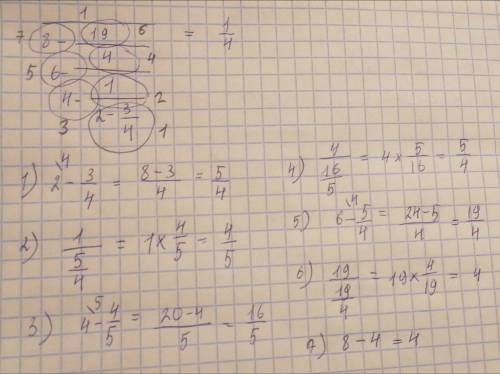 1
7 8 - 19 6 = 1/4
5 6 - 4 4
4 - 1 2
3 2 - 3/4 1
1) 2 4 - 3/4 = 8-3/4 = 5/4
2) 1/5/4 = 1 × 4/5 = 4/5
3) 4 5 - 4/5 = 20-4/5 = 16/5
4) 4/16/5 = 4 × 5/16 = 5/4
5) 6 4 - 5/4 = 24-5/4 = 19/4
6) 19/19/4 = 19 × 4/19 = 4
7) 8 - 4 = 4